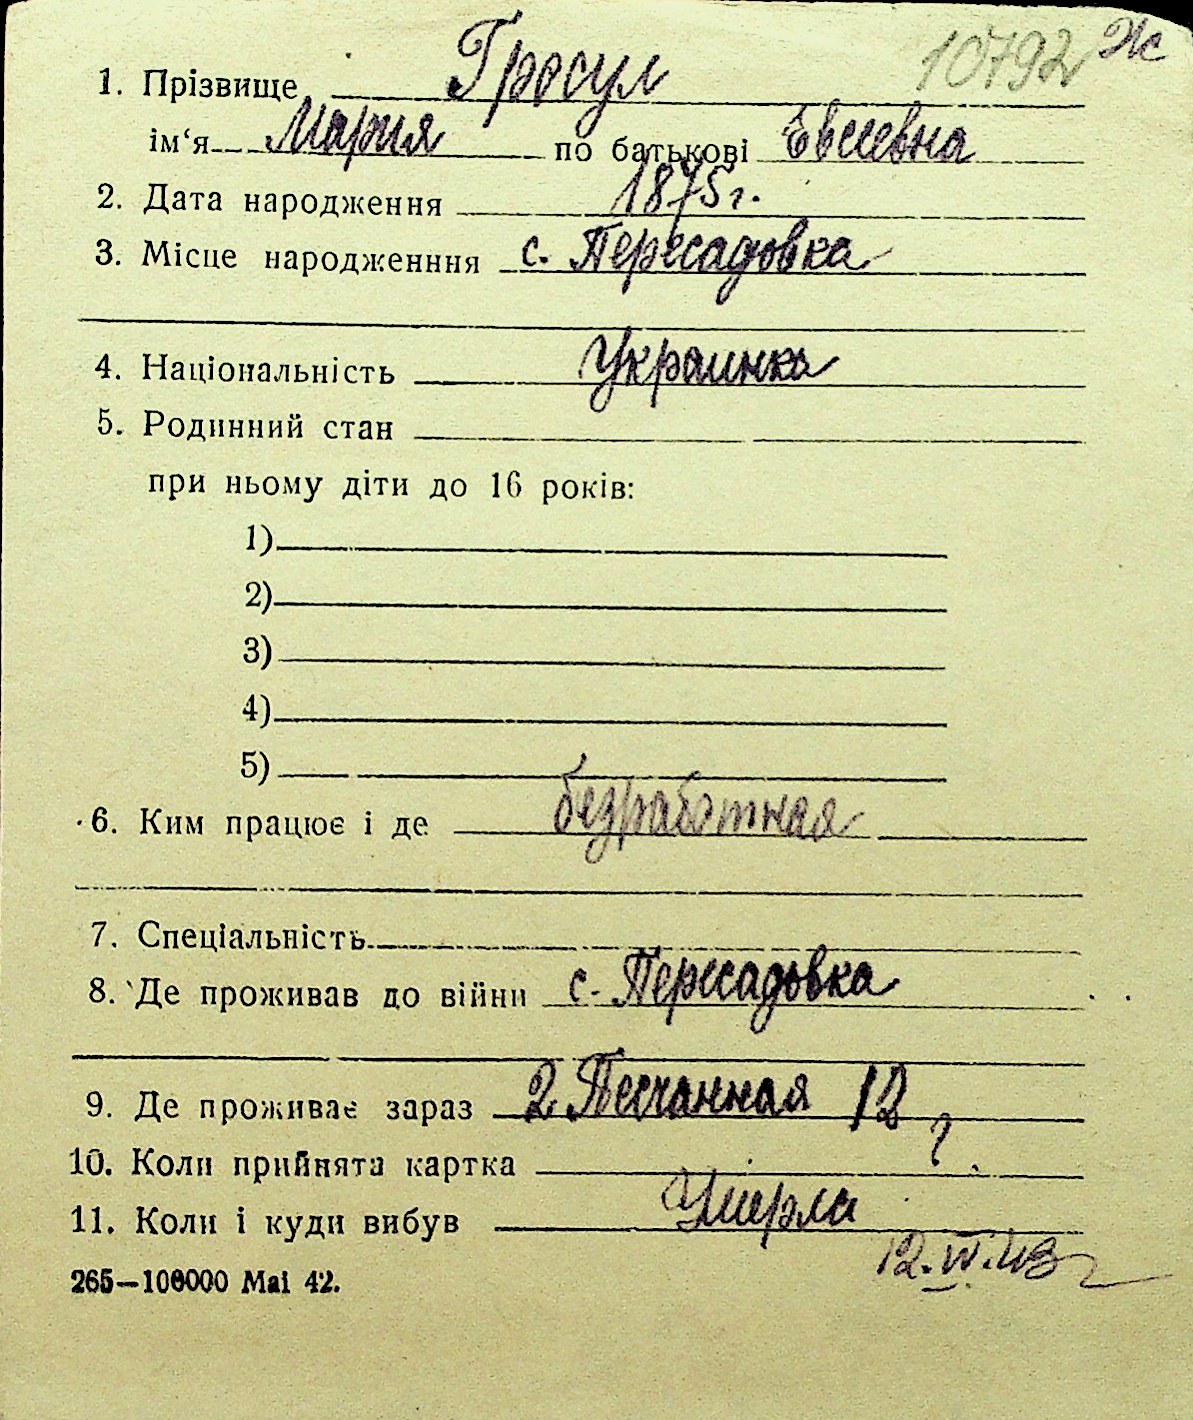 10792 Ж
1. Прізвище Гросул
ім‘я Мария по батькові Евсеевна
2. Дата народження 1875 г.
3. Місце народженння с. Пересадовка
4. Національність Украинка
5. Родинний стан
при ньому діти до 16 років:
1)
2)
3)
4)
5)
6. Ким працює і де безработная
7. Спеціальність
8. Де проживав до війни с. Пересадовка
9. Де проживає зараз 2 Песчанная 12
10. Коли прийнята картка
11. Коли і куди вибув Умерла
12.VI.43 г
265—100000 Mai 42.